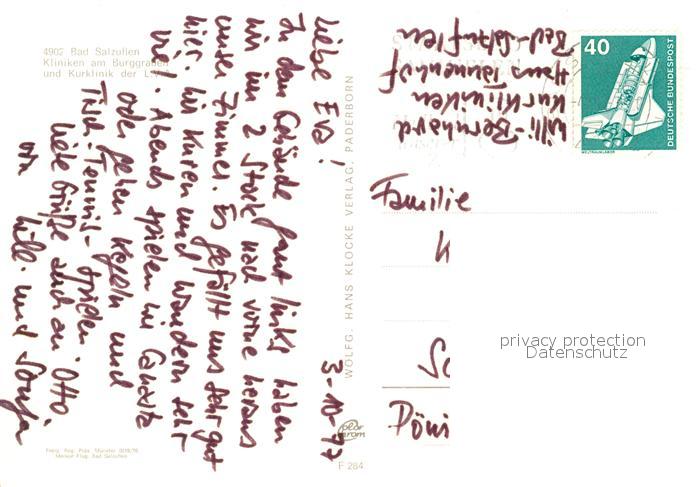 4902 Bad Salzuflen
Kliniken am Burggraben
und Kurklinik der LVA
3-10-77
Liebe Eva!
In dem Gebäude ganz links haben
wir im 2 Stock nach vorne heraus
unser Zimmer. Es gefällt uns sehr gut
hier. Wir Kuren und wandern sehr
viel. Abends spielen wir Canasta
oder gehen Kegeln und
Tisch-Tennis-spielen.
Liebe Grüße auch an Otto,
von Willi und Sonja
WOLFG. HANS KLOCKE VERLAG, PADERBORN
F 284
Willi Bernhard
Kurkliniken
Haus Tannenhof
Bad-Salzuflen
40
DEUTSCHE BUNDESPOST
WELTRAUMLABOR
Familie
privacy protection
Datenschutz